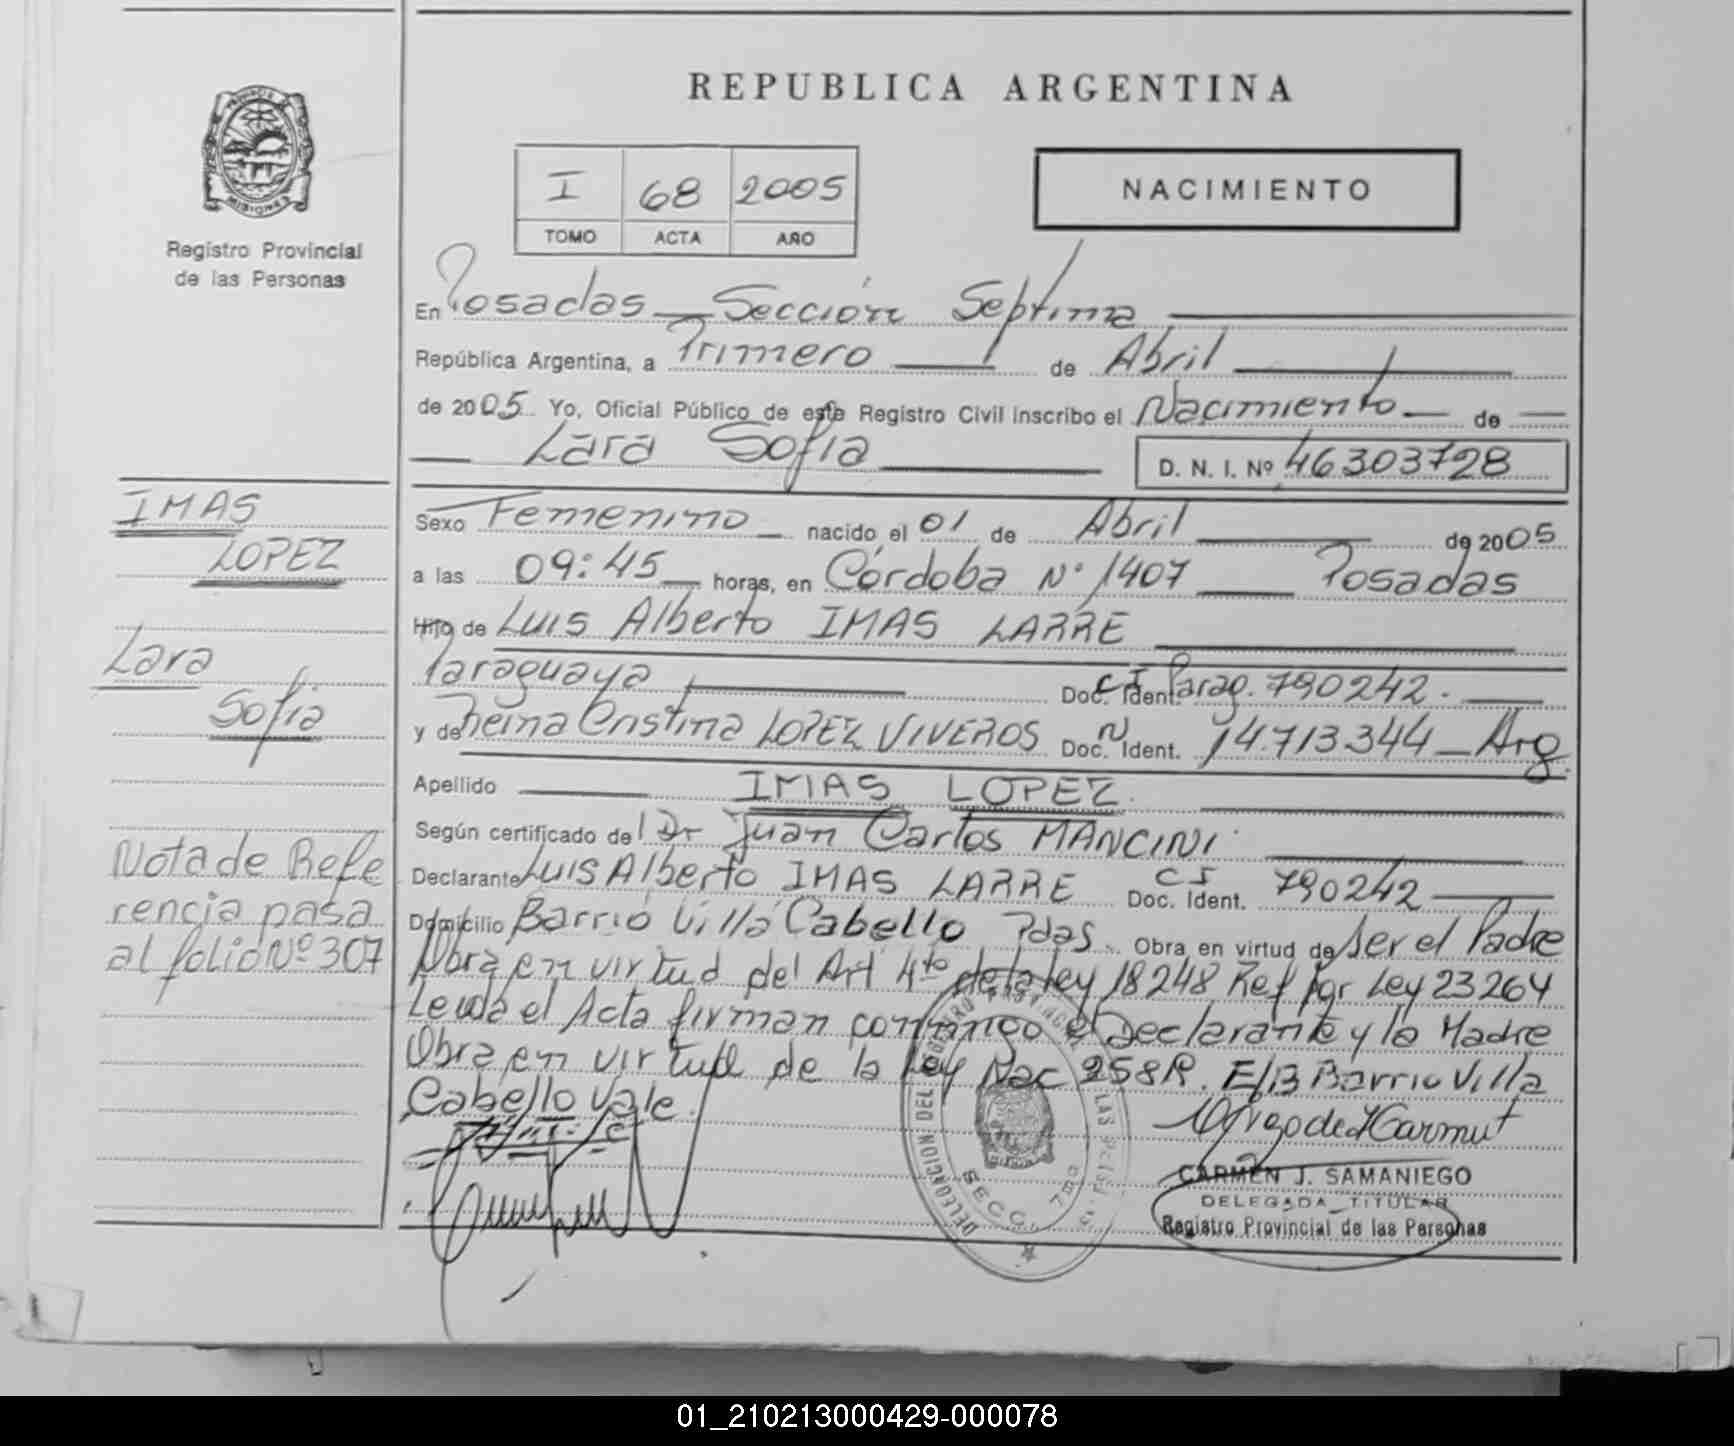 REPUBLICA ARGENTINA
PROVINCIA DE
MISIONES
Registro Provincial
de las Personas
I 68 2005
TOMO ACTA AÑO
NACIMIENTO
En Posadas — Sección Septima
República Argentina, a Primero de Abril
de 2005 Yo, Oficial Público de este Registro Civil inscribo el Nacimiento — de —
Lara Sofia
D. N. I. Nº 46303728
IMAS
LOPEZ
Lara
Sofia
Nota de Refe
rencia pasa
al folio Nº 307
Sexo Femenino nacido el 01 de Abril de 2005
a las 09:45 horas, en Córdoba Nº 1407 Posadas
Hijo de Luis Alberto IMAS LARRE
Paraguaya Doc. Ident. CI Parag. 790242.
y de Reina Cristina LOPEZ VIVEROS Doc. Ident. 14.713.344 — Arg.
Apellido IMAS LOPEZ
Según certificado del Dr Juan Carlos MANCINI
Declarante Luis Alberto IMAS LARRE Doc. Ident. CI 790242
Domicilio Barrio Villa Cabello Pdas. Obra en virtud de Ser el Padre
Obra en virtud del Art 4to de la ley 18248 Ref por Ley 23264
Leida el Acta firman conmigo el Declarante y la Madre
Obra en virtud de la Ley Nac E/B Barrio Villa
Cabello Vale
CARMEN J. SAMANIEGO
DELEGADA TITULAR
Registro Provincial de las Personas
SECC. 7ma
01_210213000429-000078